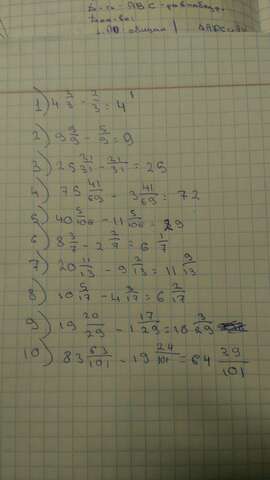 1) 4 3/3 - 2/3 = 4 1
2) 9 5/9 - 5/9 = 9
3) 25 21/31 - 21/31 = 25
4) 75 41/69 - 3 41/69 = 72
5) 40 5/106 - 11 5/106 = 29
6) 8 3/7 - 2 2/7 = 6 1/7
7) 20 11/13 - 9 2/13 = 11 9/13
8) 10 5/17 - 4 3/17 = 6 2/17
9) 19 20/29 - 1 17/29 = 18 3/29
10) 83 63/101 - 19 24/101 = 64 39/101